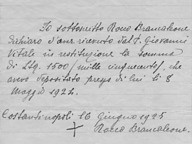 Io sottoscritto Rocco Brancaleone
dichiaro d'aver ricevuto dal S. Giovanni
Vitale in restituzione la somma
di Ltg. 1500 / mille cinquecento /, che
avevo depositato presso di lui li 8
Maggio 1922.
Costantinopoli 16 Giugno 1925
Rocco Brancaleone.